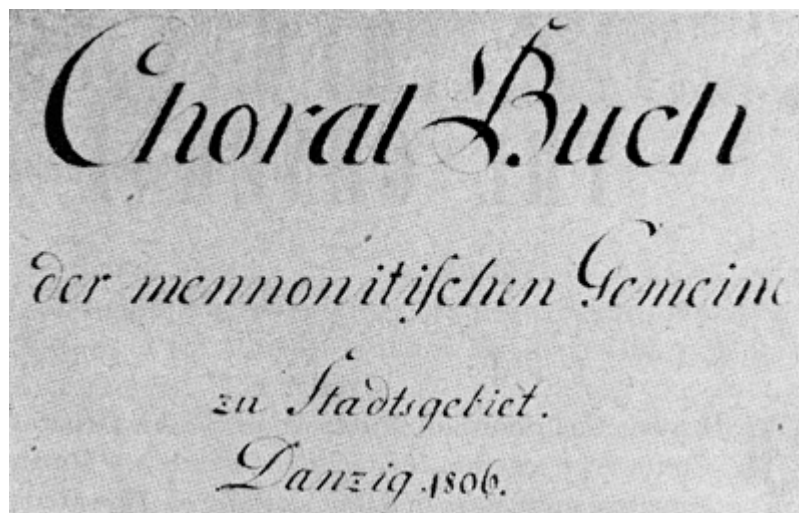 Choral Buch
der mennonitiſchen Gemeine
zu Stadtsgebiet.
Danzig. 1806.